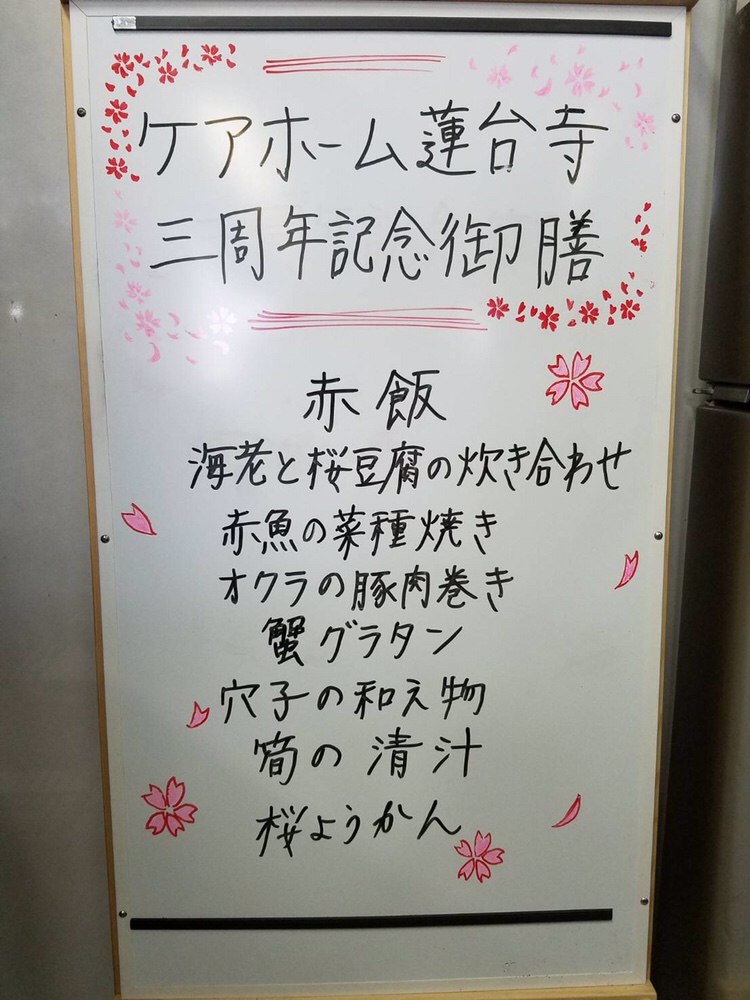 ケアホーム蓮台寺
三周年記念御膳
赤飯
海老と桜豆腐の炊き合わせ
赤魚の菜種焼き
オクラの豚肉巻き
蟹グラタン
穴子の和え物
筍の清汁
桜ようかん